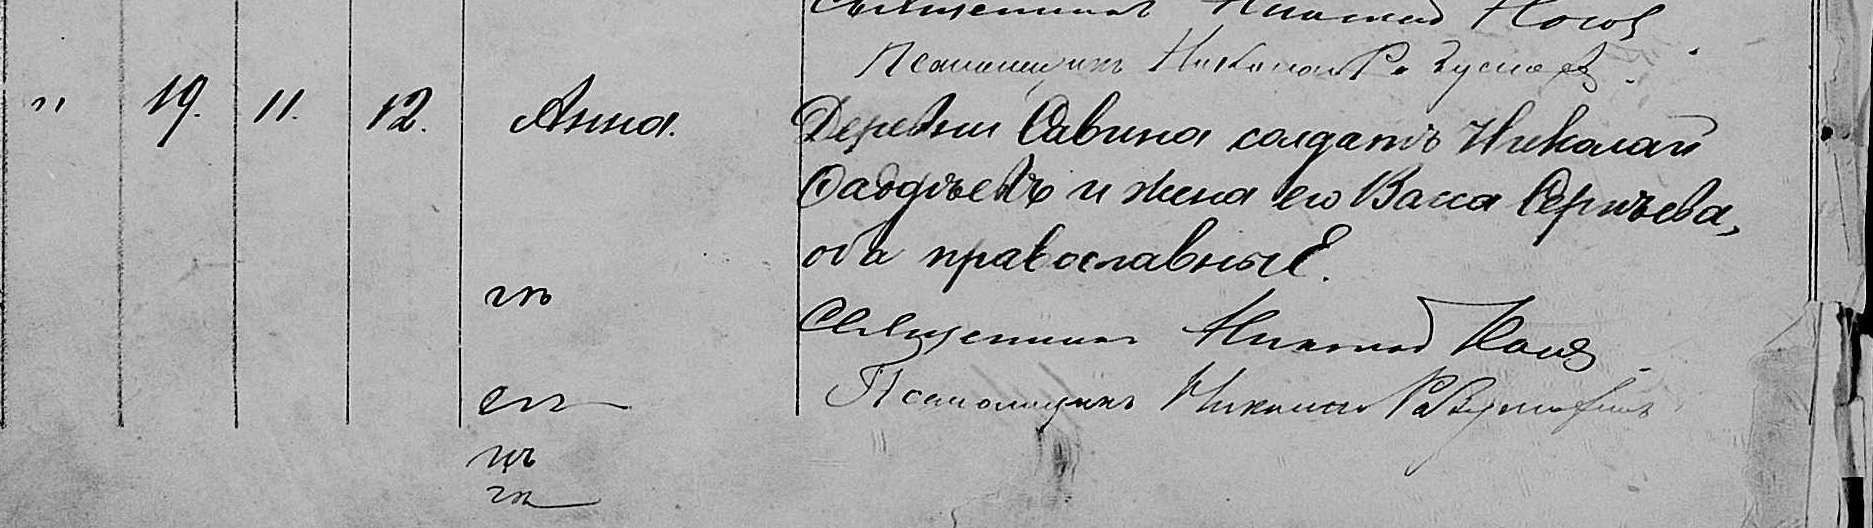 Священникъ Николай Носовъ
Псаломщикъ Николай
" 19. 11. 12. Анна. Деревни Савина солдатъ Николай
и жена его Васса Сергѣева,
оба православные.
Священникъ Николай Носовъ
Псаломщикъ Николай